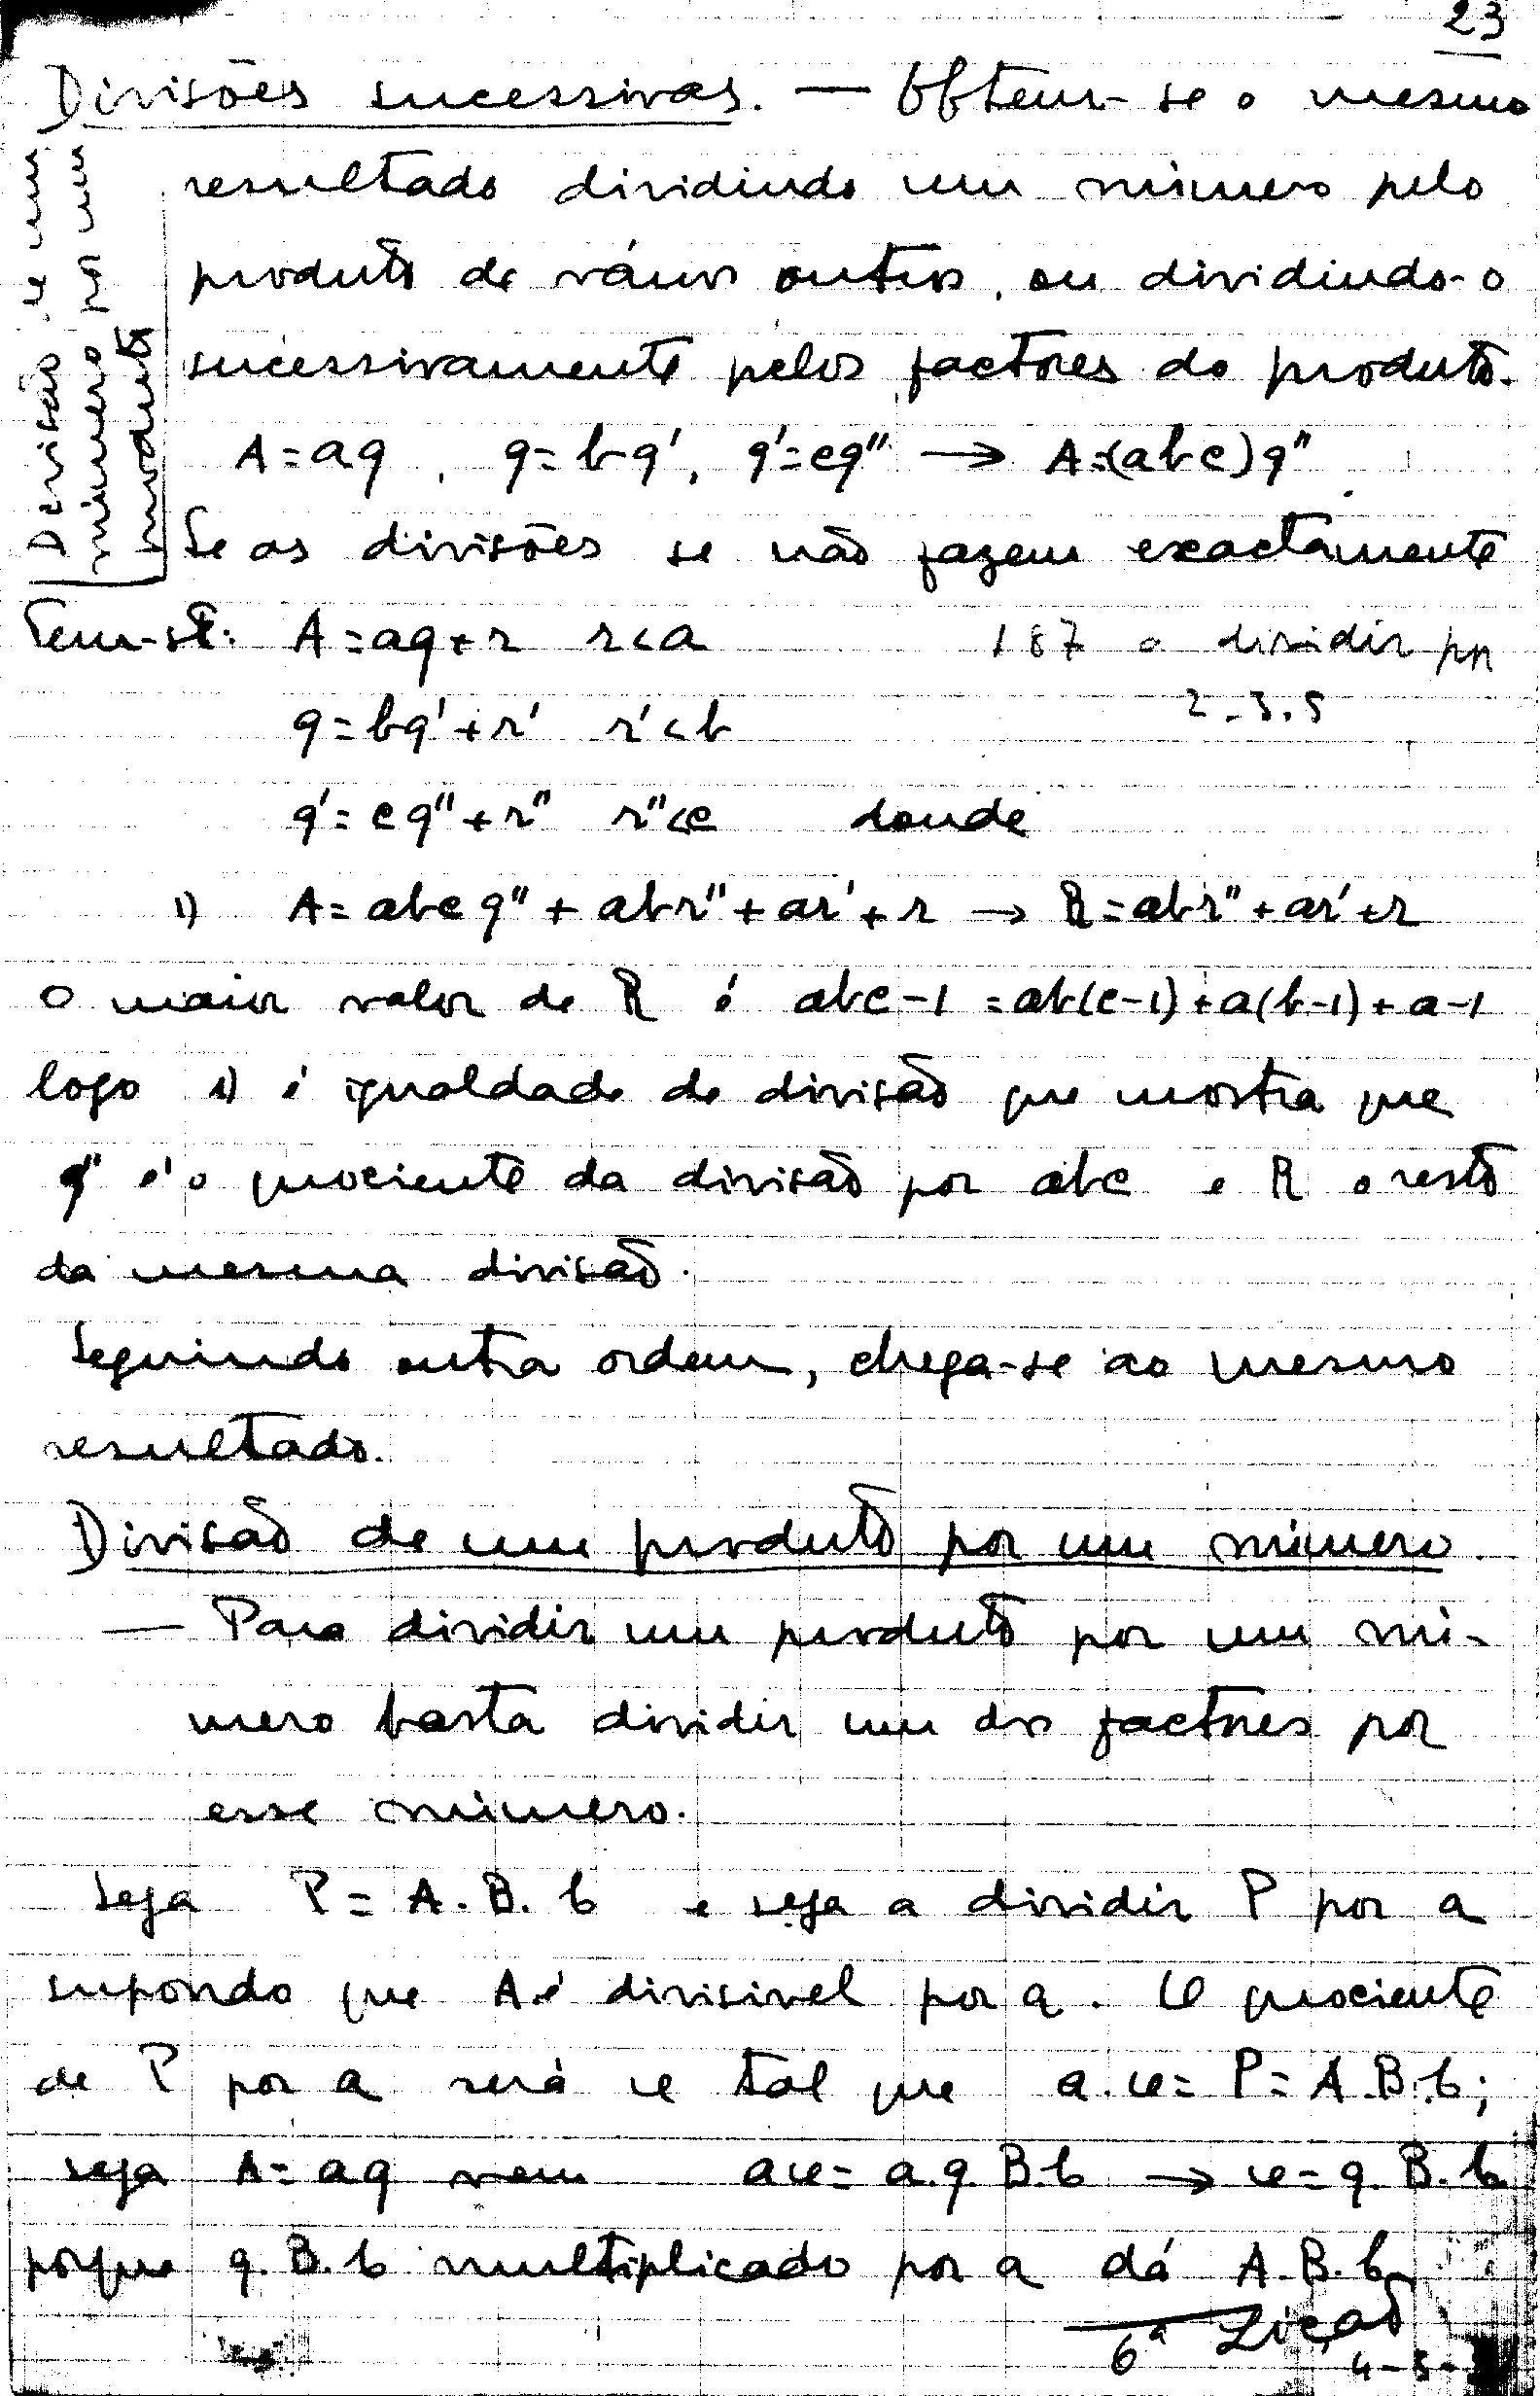 23
Divisões sucessivas. — Obtem-se o mesmo
resultado dividindo um número pelo
produto de vários outros, ou dividindo-o
sucessivamente pelos factores do produto.
Divisão de um
número por um
produto
A=aq, q=bq', q'=cq'' → A=(abc)q''
Se as divisões se não fazem exactamente
tem-se: A=aq+r r<a 187 a dividir por
2.3.5
q=bq'+r' r'<b
q'=cq''+r'' r''<c donde
1) A=abcq''+abr''+ar'+r → R=abr''+ar'+r
O maior valor de R é abc-1=ab(c-1)+a(b-1)+a-1
logo 1) é igualdade de divisão que mostra que
q'' é o quociente da divisão por abc e R o resto
da mesma divisão.
Seguindo outra ordem, chega-se ao mesmo
resultado.
Divisão de um produto por um número
— Para dividir um produto por um nú-
mero basta dividir um dos factores por
esse número.
Seja P=A.B.b e seja a dividir P por a
supondo que A é divisivel por a. O quociente
de P por a será tal que P=A.B.b;
seja A=aq vem a.q.B.b → q.B.b
porque q.B.b multiplicado por a dá A.B.b
6ª Lição